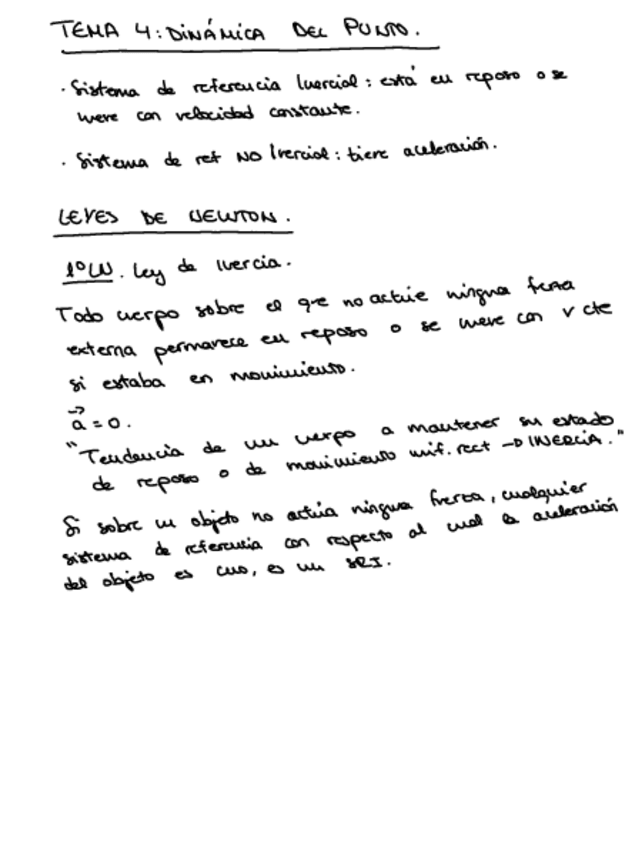 TEMA 4: DINÁMICA DEL PUNTO.
· Sistema de referencia Inercial: está en reposo o se
mueve con velocidad constante.
· Sistema de ref NO Inercial: tiene aceleración.
LEYES DE NEWTON.
1º LN. Ley de inercia.
Todo cuerpo sobre el que no actúe ninguna fuerza
externa permanece en reposo o se mueve con v cte
si estaba en movimiento.
a⃗ = 0.
"Tendencia de un cuerpo a mantener su estado
de reposo o de movimiento unif. rect → INERCIA."
Si sobre un objeto no actúa ninguna fuerza, cualquier
sistema de referencia con respecto al cual la aceleración
del objeto es cero, es un SRI.